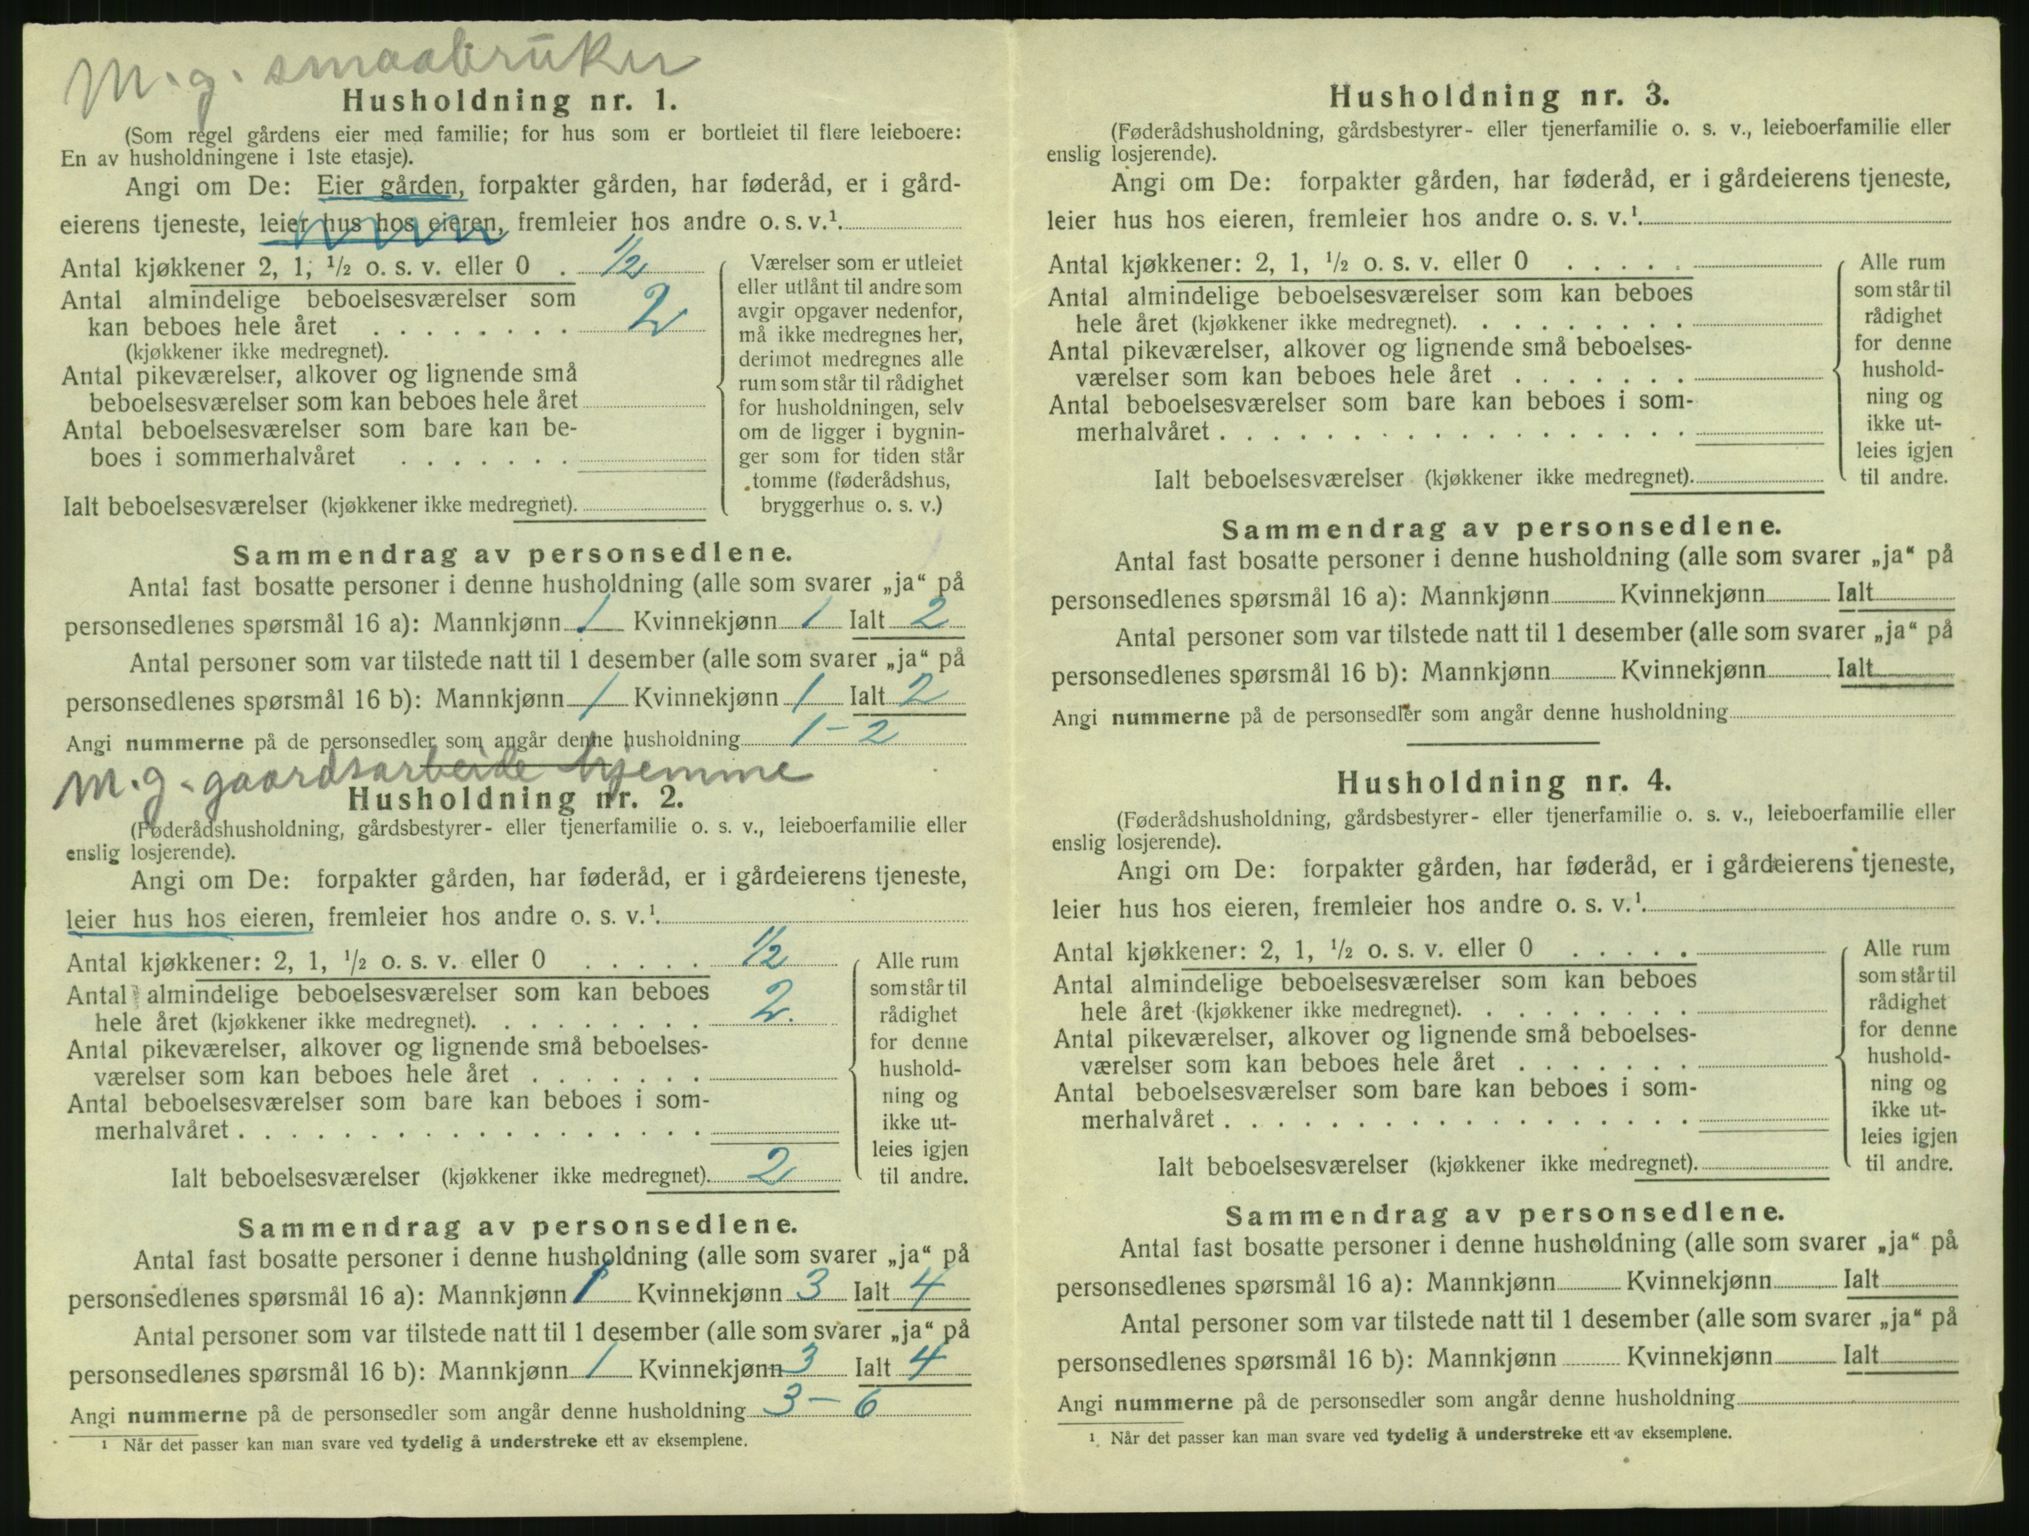 M. g. smaabruker
Husholdning nr. 1.
(Som regel gårdens eier med familie; for hus som er bortleiet til flere leieboere:
En av husholdningene i 1ste etasje).
Angi om De: Eier gården, forpakter gården, har føderåd, er i gård-
eierens tjeneste, leier hus hos eieren, fremleier hos andre o. s. v.¹.
Antal kjøkkener 2, 1, ½ o. s. v. eller 0 . ½
Antal almindelige beboelsesværelser som
kan beboes hele året . . . . . . . 2
(kjøkkener ikke medregnet).
Antal pikeværelser, alkover og lignende små
beboelsesværelser som kan beboes hele året
Antal beboelsesværelser som bare kan be-
boes i sommerhalvåret . . . . . . .
Ialt beboelsesværelser (kjøkkener ikke medregnet).
Værelser som er utleiet
eller utlånt til andre som
avgir opgaver nedenfor,
må ikke medregnes her,
derimot medregnes alle
rum som står til rådighet
for husholdningen, selv
om de ligger i bygnin-
ger som for tiden står
tomme (føderådshus,
bryggerhus o. s. v.)
Sammendrag av personsedlene.
Antal fast bosatte personer i denne husholdning (alle som svarer „ja“ på
personsedlenes spørsmål 16 a): Mannkjønn 1 Kvinnekjønn 1 Ialt 2
Antal personer som var tilstede natt til 1 desember (alle som svarer „ja“ på
personsedlenes spørsmål 16 b): Mannkjønn 1 Kvinnekjønn 1 Ialt 2
Angi nummerne på de personsedler som angår denne husholdning 1 - 2
M. g. gaardsarbeide hjemme
Husholdning nr. 2.
(Føderådshusholdning, gårdsbestyrer- eller tjenerfamilie o. s. v., leieboerfamilie eller
enslig losjerende).
Angi om De: forpakter gården, har føderåd, er i gårdeierens tjeneste,
leier hus hos eieren, fremleier hos andre o. s. v.¹.
Antal kjøkkener: 2, 1, ½ o. s. v. eller 0 . . . . . ½
Antal almindelige beboelsesværelser som kan beboes
hele året (kjøkkener ikke medregnet). . . . . . . . . 2.
Antal pikeværelser, alkover og lignende små beboelses-
værelser som kan beboes hele året . . . . . . .
Antal beboelsesværelser som bare kan beboes i som-
merhalvåret . . . . . . . . . . . . . . . . . .
Ialt beboelsesværelser (kjøkkener ikke medregnet). 2
Alle rum
som står til
rådighet
for denne
hushold-
ning og
ikke ut-
leies igjen
til andre.
Sammendrag av personsedlene.
Antal fast bosatte personer i denne husholdning (alle som svarer „ja“ på
personsedlenes spørsmål 16 a): Mannkjønn 1 Kvinnekjønn 3 Ialt 4
Antal personer som var tilstede natt til 1 desember (alle som svarer „ja“ på
personsedlenes spørsmål 16 b): Mannkjønn 1 Kvinnekjønn 3 Ialt 4
Angi nummerne på de personsedler som angår denne husholdning 3 - 6
¹ Når det passer kan man svare ved tydelig å understreke ett av eksemplene.
Husholdning nr. 3.
(Føderådshusholdning, gårdsbestyrer- eller tjenerfamilie o. s. v., leieboerfamilie eller
enslig losjerende).
Angi om De: forpakter gården, har føderåd, er i gårdeierens tjeneste,
leier hus hos eieren, fremleier hos andre o. s. v.¹.
Antal kjøkkener: 2, 1, ½ o. s. v. eller 0 . . . . .
Antal almindelige beboelsesværelser som kan beboes
hele året (kjøkkener ikke medregnet). . . . . . . . .
Antal pikeværelser, alkover og lignende små beboelses-
værelser som kan beboes hele året . . . . . . .
Antal beboelsesværelser som bare kan beboes i som-
merhalvåret . . . . . . . . . . . . . . . . . .
Ialt beboelsesværelser (kjøkkener ikke medregnet).
Alle rum
som står til
rådighet
for denne
hushold-
ning og
ikke ut-
leies igjen
til andre.
Sammendrag av personsedlene.
Antal fast bosatte personer i denne husholdning (alle som svarer „ja“ på
personsedlenes spørsmål 16 a): Mannkjønn Kvinnekjønn Ialt
Antal personer som var tilstede natt til 1 desember (alle som svarer „ja“ på
personsedlenes spørsmål 16 b): Mannkjønn Kvinnekjønn Ialt
Angi nummerne på de personsedler som angår denne husholdning
Husholdning nr. 4.
(Føderådshusholdning, gårdsbestyrer- eller tjenerfamilie o. s. v., leieboerfamilie eller
enslig losjerende).
Angi om De: forpakter gården, har føderåd, er i gårdeierens tjeneste,
leier hus hos eieren, fremleier hos andre o. s. v.¹.
Antal kjøkkener: 2, 1, ½ o. s. v. eller 0 . . . . .
Antal almindelige beboelsesværelser som kan beboes
hele året (kjøkkener ikke medregnet). . . . . . . . .
Antal pikeværelser, alkover og lignende små beboelses-
værelser som kan beboes hele året . . . . . . .
Antal beboelsesværelser som bare kan beboes i som-
merhalvåret . . . . . . . . . . . . . . . . . .
Ialt beboelsesværelser (kjøkkener ikke medregnet).
Alle rum
som står til
rådighet
for denne
hushold-
ning og
ikke ut-
leies igjen
til andre.
Sammendrag av personsedlene.
Antal fast bosatte personer i denne husholdning (alle som svarer „ja“ på
personsedlenes spørsmål 16 a): Mannkjønn Kvinnekjønn Ialt
Antal personer som var tilstede natt til 1 desember (alle som svarer „ja“ på
personsedlenes spørsmål 16 b): Mannkjønn Kvinnekjønn Ialt
Angi nummerne på de personsedler som angår denne husholdning
¹ Når det passer kan man svare ved tydelig å understreke ett av eksemplene.